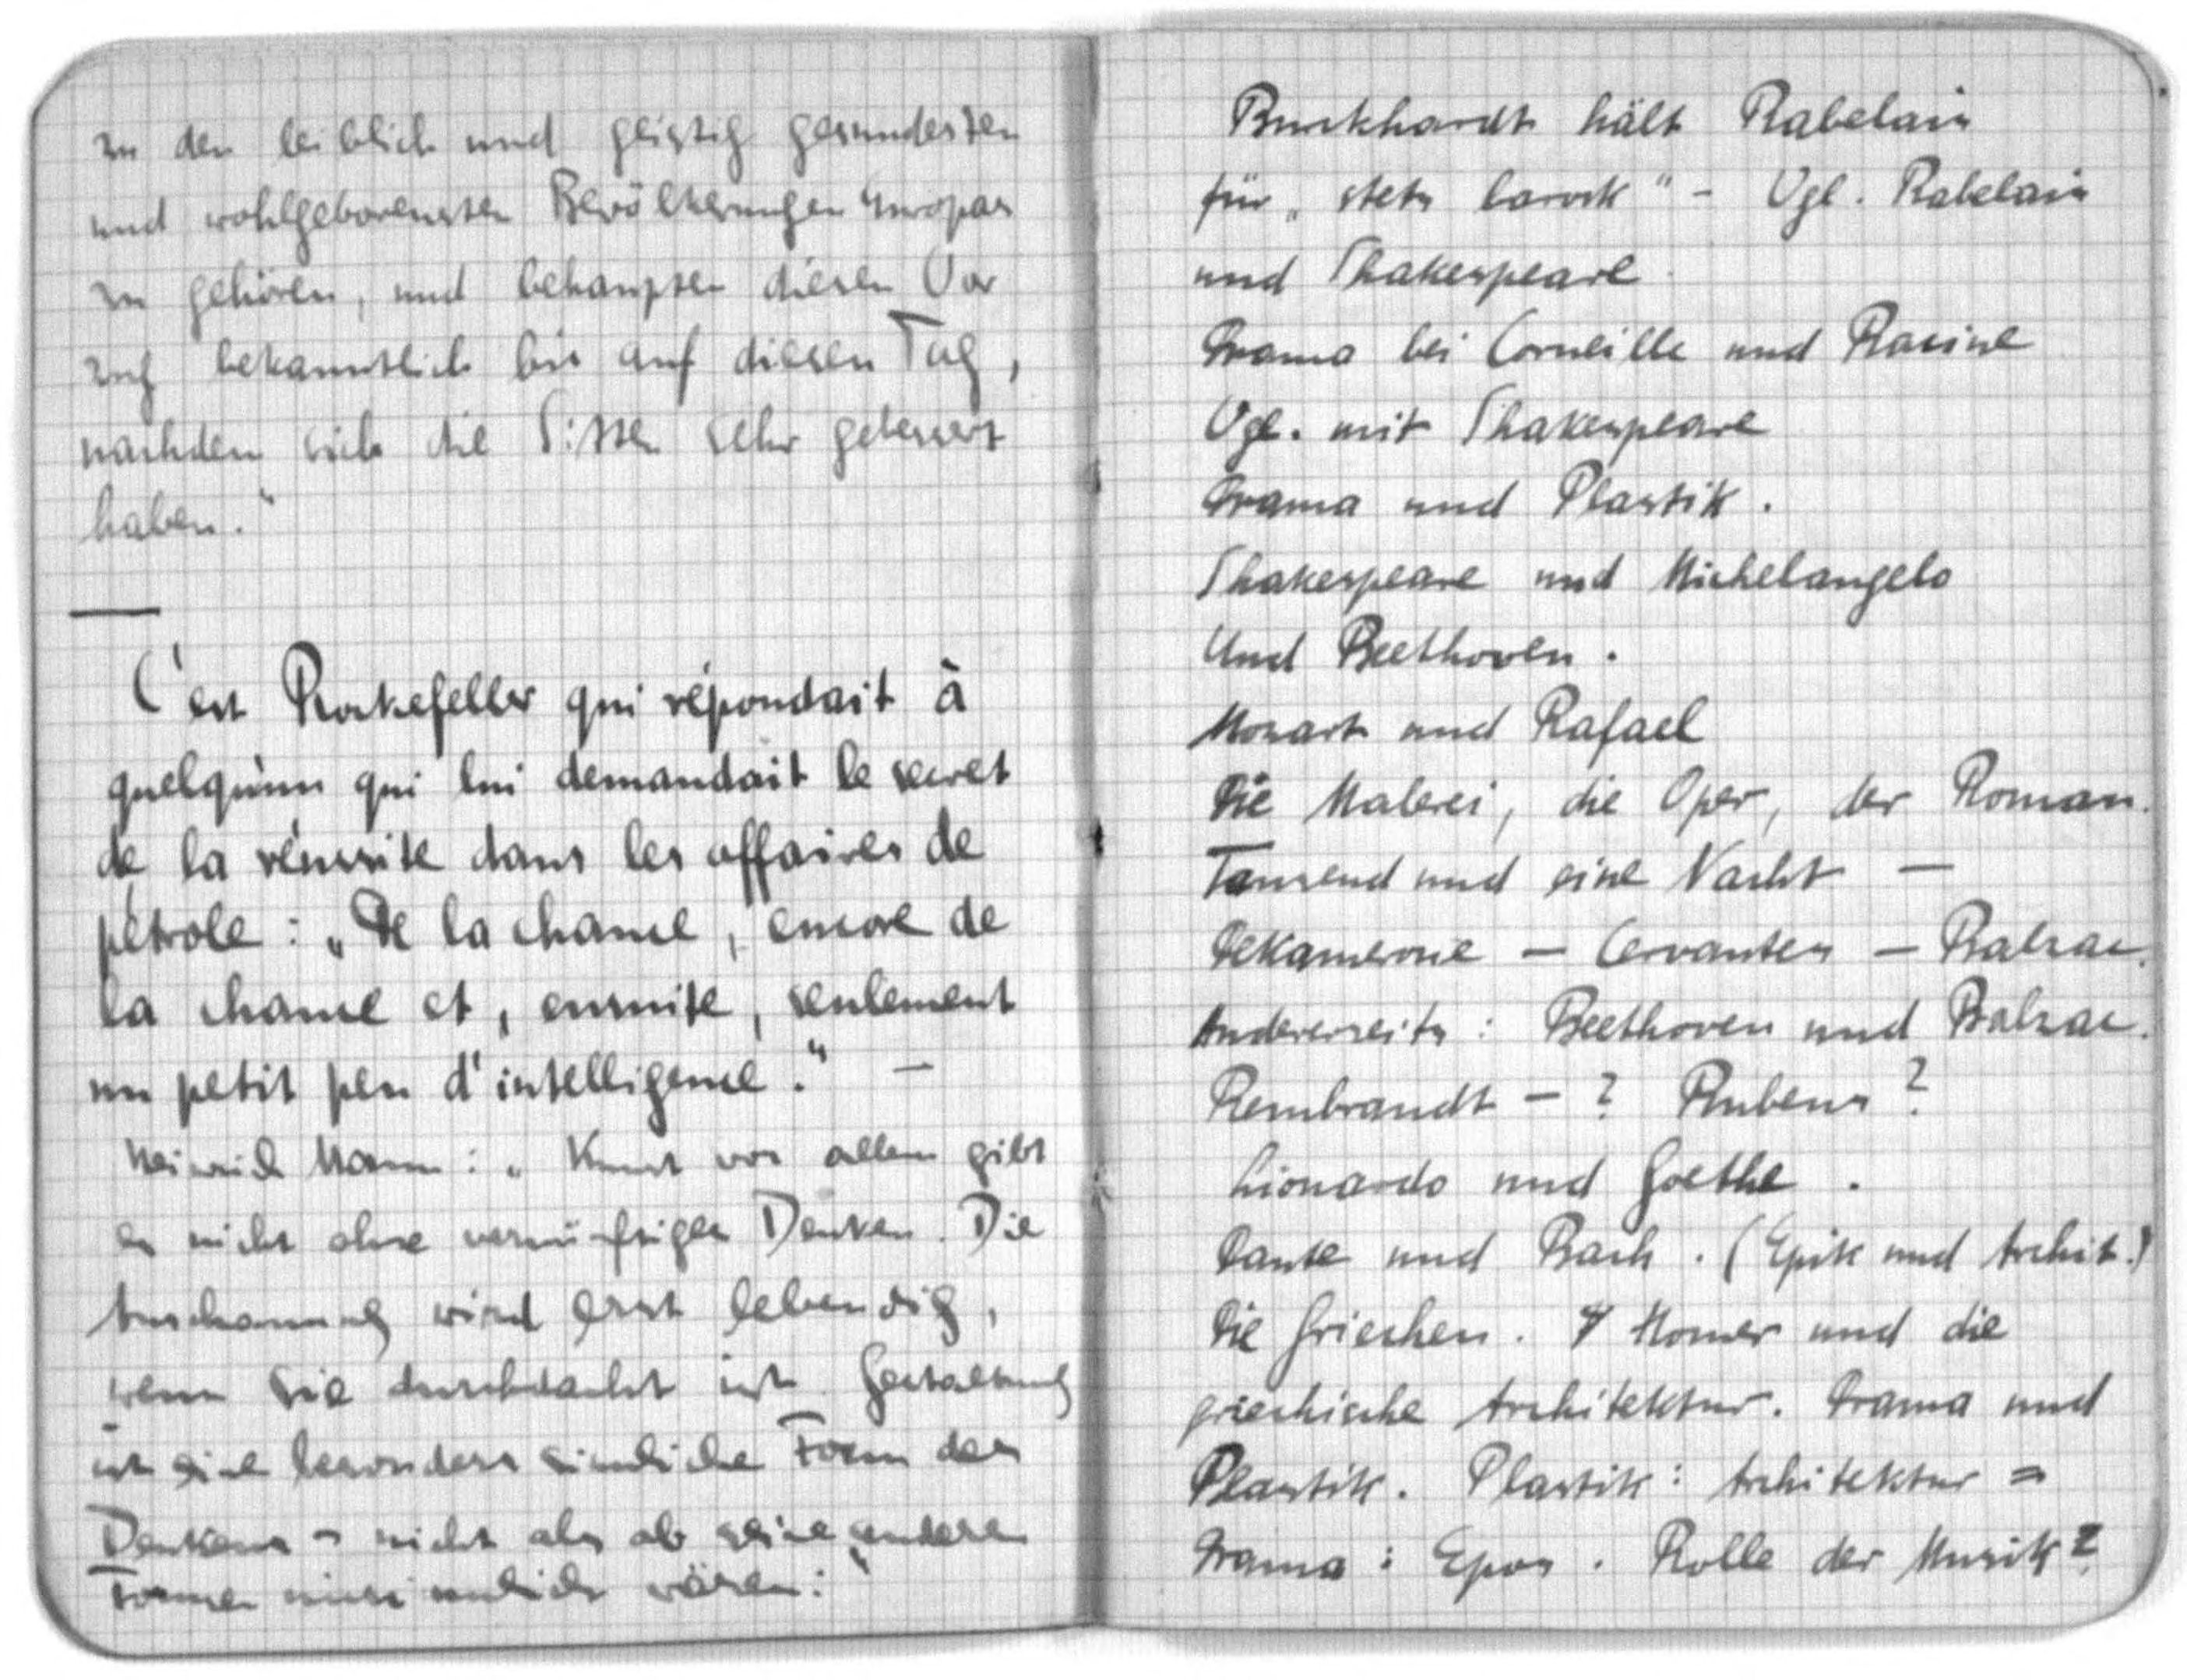 zu den leiblich und geistig gesundesten
und wohlgeborensten Bevölkerungen Europas
zu gehören, und behaupten diesen Vor
zug bekanntlich bis auf diesen Tag,
nachdem sich die Sitten sehr gebessert
haben."
C'est Rockefeller qui répondait à
quelqu'un qui lui demandait le secret
de la réussite dans les affaires de
pétrole : „De la chance, encore de
la chance et, ensuite, seulement
un petit peu d'intelligence." –
Heinrich Mann : „Kunst vor allem gibt
es nicht ohne vernünftiges Denken. Die
Anschauung wird erst lebendig,
wenn sie durchdacht ist. Gestaltung
ist eine besonders sinnliche Form des
Denkens – nicht als ob seine anderen
Formen unsinnlich wären."
Burckhardt hält Rabelais
für „stets barock" – Vgl. Rabelais
und Shakespeare.
Drama bei Corneille und Racine
Vgl. mit Shakespeare
Drama und Plastik.
Shakespeare und Michelangelo
Und Beethoven.
Mozart und Rafael
Die Malerei, die Oper, der Roman.
Tausend und eine Nacht –
Dekamerone – Cervantes – Balzac.
Andererseits : Beethoven und Balzac.
Rembrandt – ? Rubens ?
Lionardo und Goethe.
Dante und Bach. (Epik und Archit.)
Die Griechen. Homer und die
griechische Architektur. Drama und
Plastik. Plastik : Architektur =
Drama : Epos. Rolle der Musik?